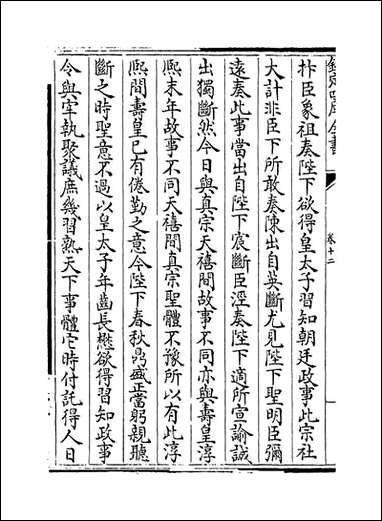 欽定四庫全書
卷十二
朴臣象祖奏陛下欲得皇太子習知朝廷政事此宗社
大計非臣下所敢奏陳出自英斷尤見陛下聖明臣彌
遠奏此事當出自陛下宸斷臣涇奏陛下適所宣諭誠
出獨斷然今日與真宗天禧間故事不同亦與壽皇淳
熙末年故事不同天禧間真宗聖體不豫所以有此淳
熙間壽皇已有倦勤之意今陛下春秋鼎盛正當躬親聽
斷之時聖意不過以皇太子年齒長懋欲得習知政事
令與宰執聚議庶幾習熟天下事體它時付託得人日